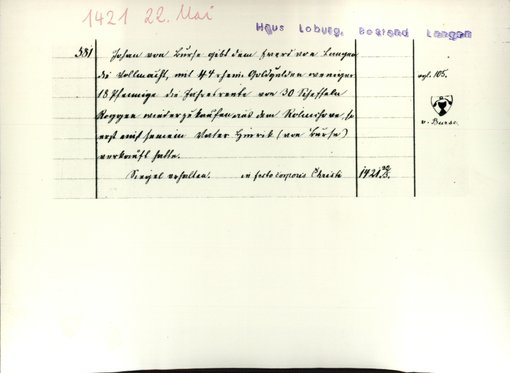 1421 22. Mai
Haus Loburg, Bestand Langen
331
Johan von Bürse gibt dem Evert von Langen
die Vollmacht, mit 44 rhein. Goldgulden weniger
18 Pfennige die Jahresrente von 30 Scheffeln
Roggen wiederzukaufen aus dem
erst mit seinem Vater Hinrik (von Bürse)
verkauft hatte.
Siegel erhalten. in festo corporis Christi 1421 22/5.
vgl. 105.
v. Burse.